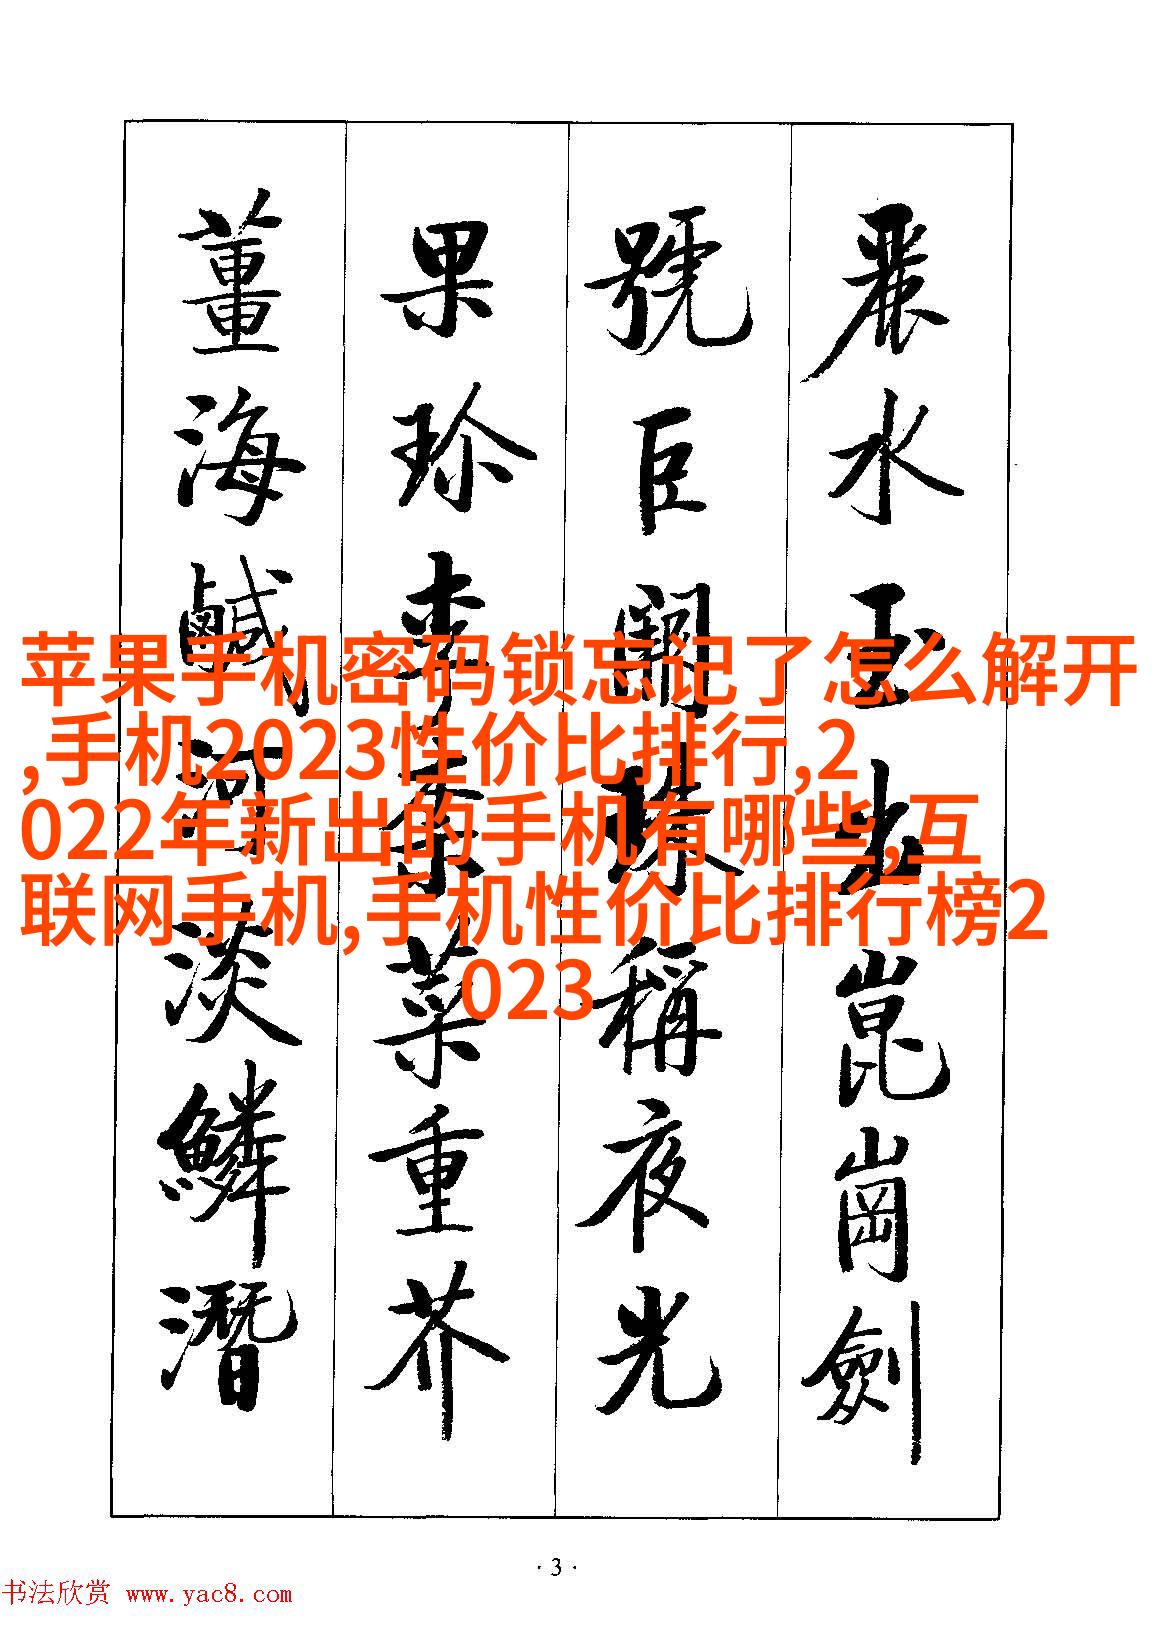 麗水玉出崑崗劍
號巨闕珠稱夜光
果珍李柰菜重芥
薑海鹹河淡鱗潛
苹果手机密码锁忘记了怎么解开
,手机2023性价比排行,2
022年新出的手机有哪些,互
联网手机,手机性价比排行榜2
023
· 3 ·
书法欣赏 www.yac8.com